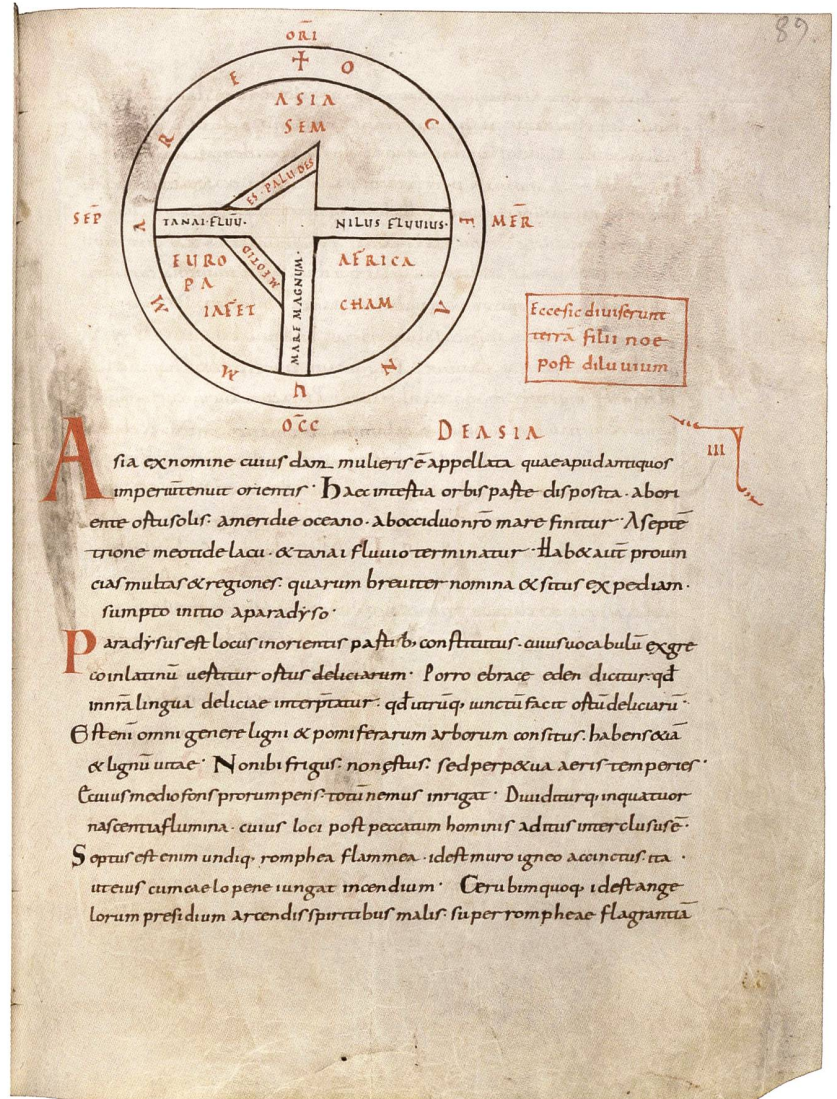 89.
ORI
MARE OCEANUM
ASIA
SEM
ES·PALUDES
SEP
TANAI·FLUU·
NILUS FLUUIUS·
MER
MEOTID
EURO
PA
IAFET
AFRICA
CHAM
MARE MAGNUM·
Eccesic diuiserunt
terrā filii noe
post diluuium
OCC
DEASIA
III
Asia ex nomine cuius dam mulieris ē appellata quae apud antiquos
imperiū tenuit orientis· Haec in tertia orbis parte disposita· abori
ente ortu solis· ameridie oceano· abocciduo nro mare finitur· Aseptē
trione meotide lacu· & tanai fluuio terminatur· Hab& aut prouin
cias multas & regiones· quarum breuiter nomina & situs expediam·
sumpto initio aparadyso·
Paradysus est locus in orientis partib; constitutus· cuius uocabulū ex gre
co in latinū uertitur ortus deliciarum· Porro ebrace eden dicitur· qđ
in nr̄a lingua deliciae interp̄tatur· qđ utrūq; iunctū facit ortū deliciarū·
Est enī omni genere ligni & pomiferarum arborum consitus· habens &iā
& lignū uitae· Non ibi frigus· non ęstus· sed perp&ua aeris temperies·
Ecuius medio fons prorumpens· totū nemus inrigat· Diuiditurq; inquatuor
nascentia flumina· cuius loci post peccatum hominis aditus interclusus ē·
Septus est enim undiq; romphea flammea· id est muro igneo accinctus· ita·
ut eius cum caelo pene iungat incendium· Cerubim quoq; id est ange
lorum presidium arcendis spiritibus malis· super rompheae flagrantiā